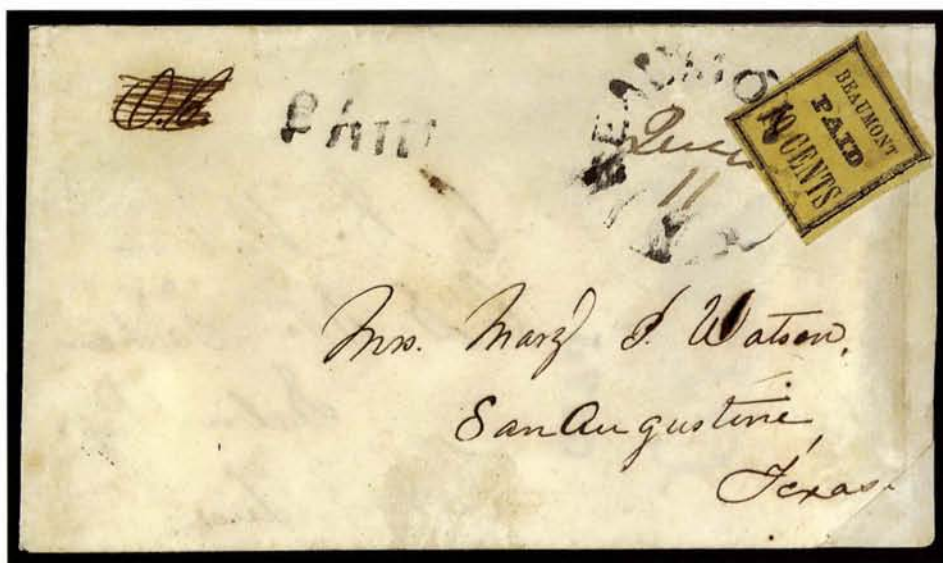 PAID
BEAUMO
11
BEAUMONT
PAID
10 CENTS
Mrs. Mary J. Watson,
San Augustine,
Texas.